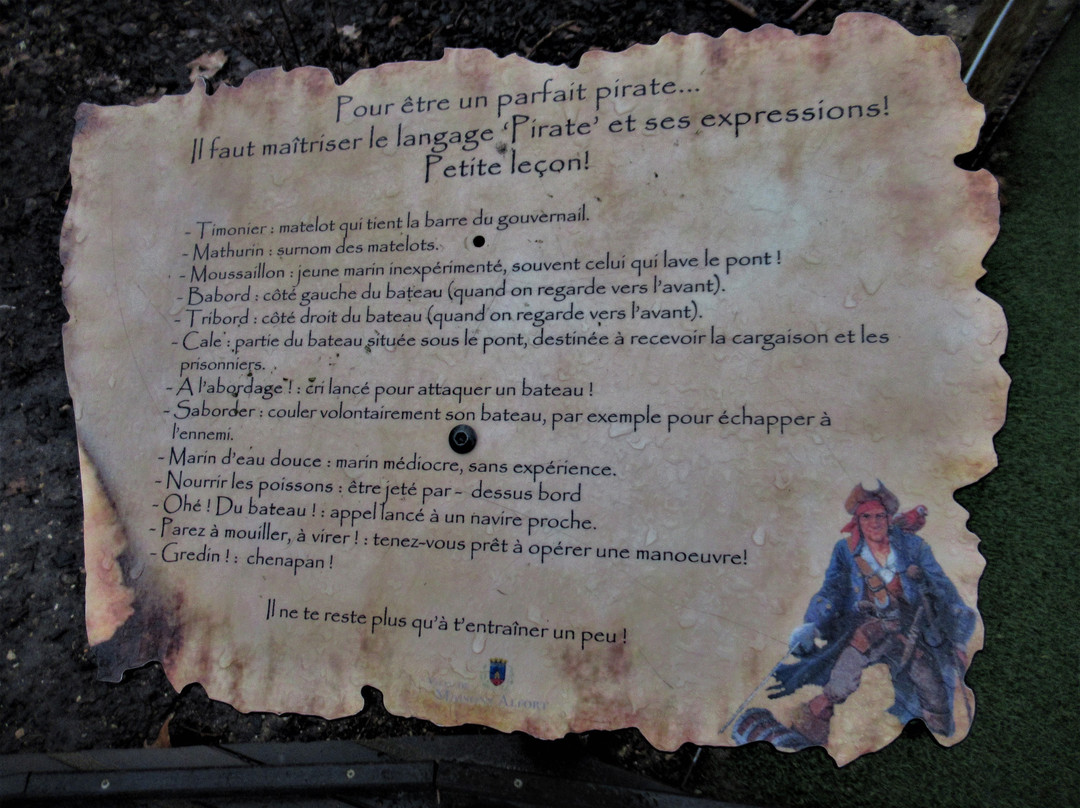 Pour être un parfait pirate...
Il faut maîtriser le langage ‘Pirate’ et ses expressions!
Petite leçon!
- Timonier : matelot qui tient la barre du gouvernail.
- Mathurin : surnom des matelots.
- Moussaillon : jeune marin inexpérimenté, souvent celui qui lave le pont !
- Babord : côté gauche du bateau (quand on regarde vers l'avant).
- Tribord : côté droit du bateau (quand on regarde vers l'avant).
- Cale : partie du bateau située sous le pont, destinée à recevoir la cargaison et les
prisonniers.
- A l'abordage ! : cri lancé pour attaquer un bateau !
- Saborder : couler volontairement son bateau, par exemple pour échapper à
l'ennemi.
- Marin d'eau douce : marin médiocre, sans expérience.
- Nourrir les poissons : être jeté par - dessus bord
- Ohé ! Du bateau ! : appel lancé à un navire proche.
- Parez à mouiller, à virer ! : tenez-vous prêt à opérer une manoeuvre!
- Gredin ! : chenapan !
Il ne te reste plus qu'à t'entraîner un peu !
Maisons-Alfort